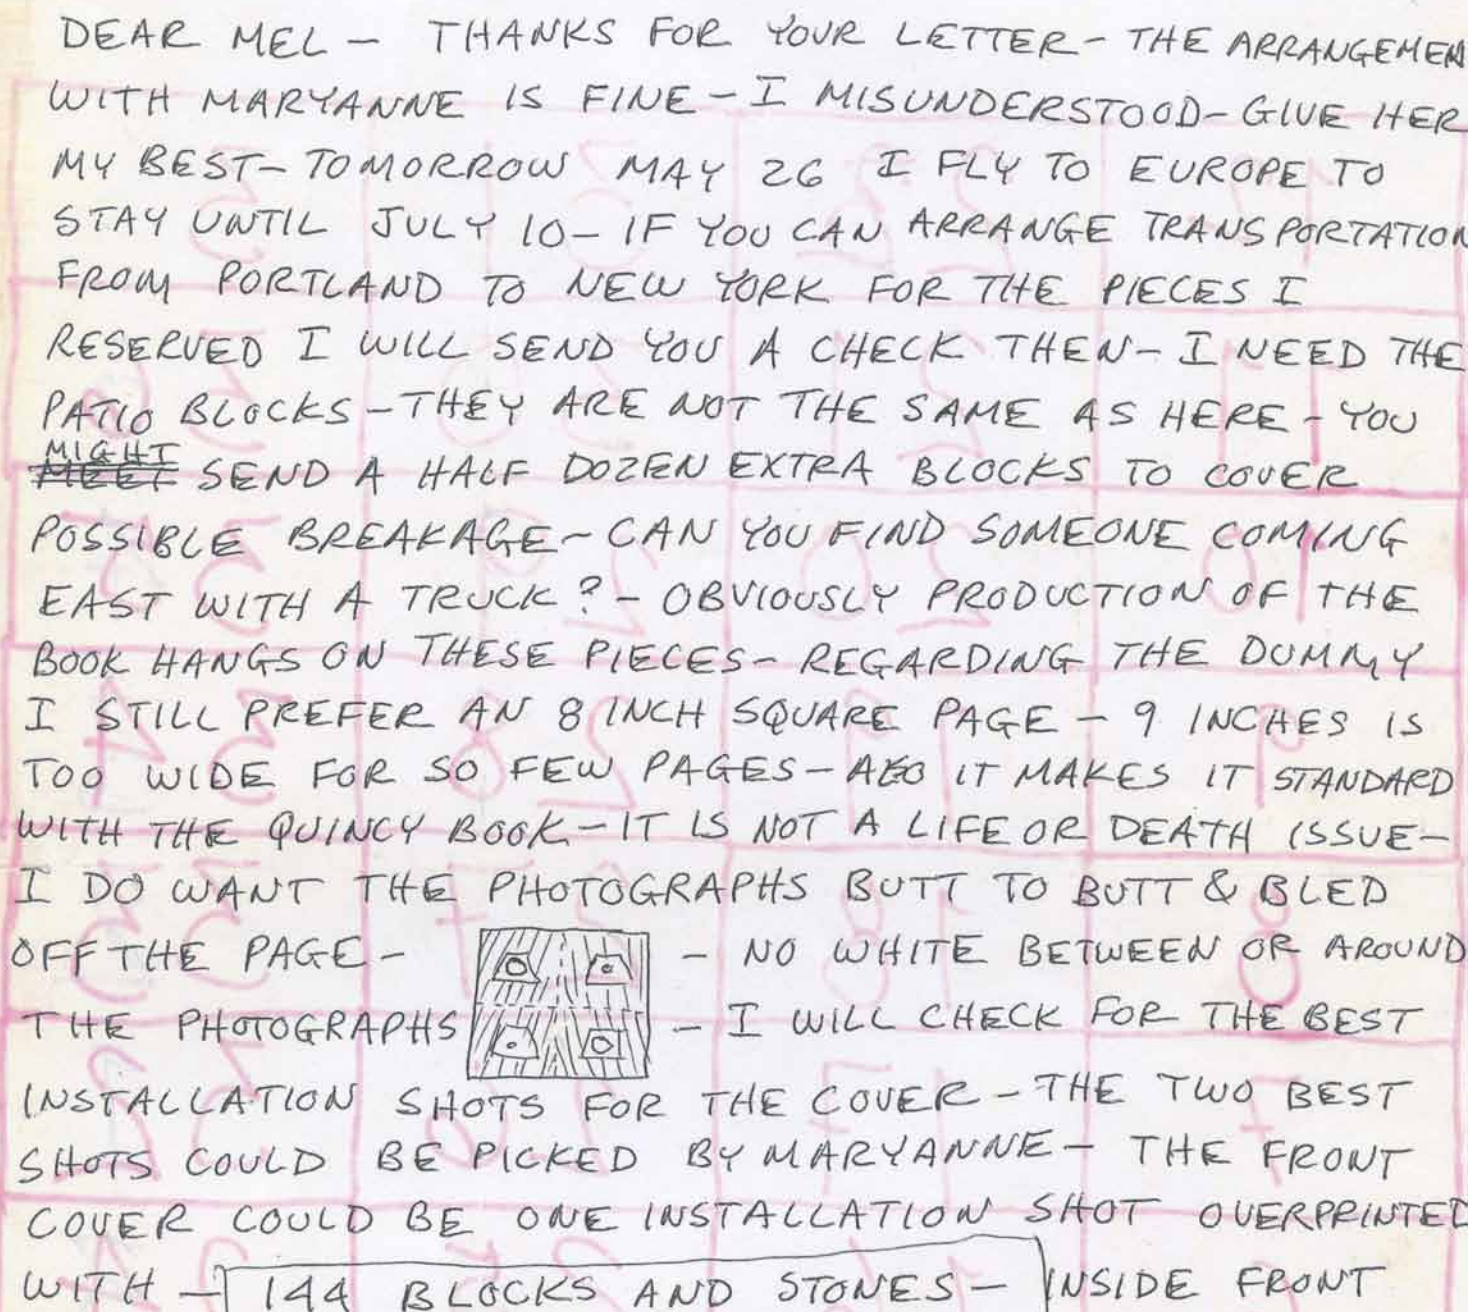 DEAR MEL – THANKS FOR YOUR LETTER – THE ARRANGEMEN
WITH MARYANNE IS FINE – I MISUNDERSTOOD – GIVE HER
MY BEST – TOMORROW MAY 26 I FLY TO EUROPE TO
STAY UNTIL JULY 10 – IF YOU CAN ARRANGE TRANSPORTATION
FROM PORTLAND TO NEW YORK FOR THE PIECES I
RESERVED I WILL SEND YOU A CHECK THEN – I NEED THE
PATIO BLOCKS – THEY ARE NOT THE SAME AS HERE – YOU
MIGHT SEND A HALF DOZEN EXTRA BLOCKS TO COVER
POSSIBLE BREAKAGE – CAN YOU FIND SOMEONE COMING
EAST WITH A TRUCK? – OBVIOUSLY PRODUCTION OF THE
BOOK HANGS ON THESE PIECES – REGARDING THE DUMMY
I STILL PREFER AN 8 INCH SQUARE PAGE – 9 INCHES IS
TOO WIDE FOR SO FEW PAGES – ALSO IT MAKES IT STANDARD
WITH THE QUINCY BOOK – IT IS NOT A LIFE OR DEATH ISSUE –
I DO WANT THE PHOTOGRAPHS BUTT TO BUTT & BLED
OFF THE PAGE – – NO WHITE BETWEEN OR AROUND
THE PHOTOGRAPHS – I WILL CHECK FOR THE BEST
INSTALLATION SHOTS FOR THE COVER – THE TWO BEST
SHOTS COULD BE PICKED BY MARYANNE – THE FRONT
COVER COULD BE ONE INSTALLATION SHOT OVERPRINTED
WITH – 144 BLOCKS AND STONES – INSIDE FRONT